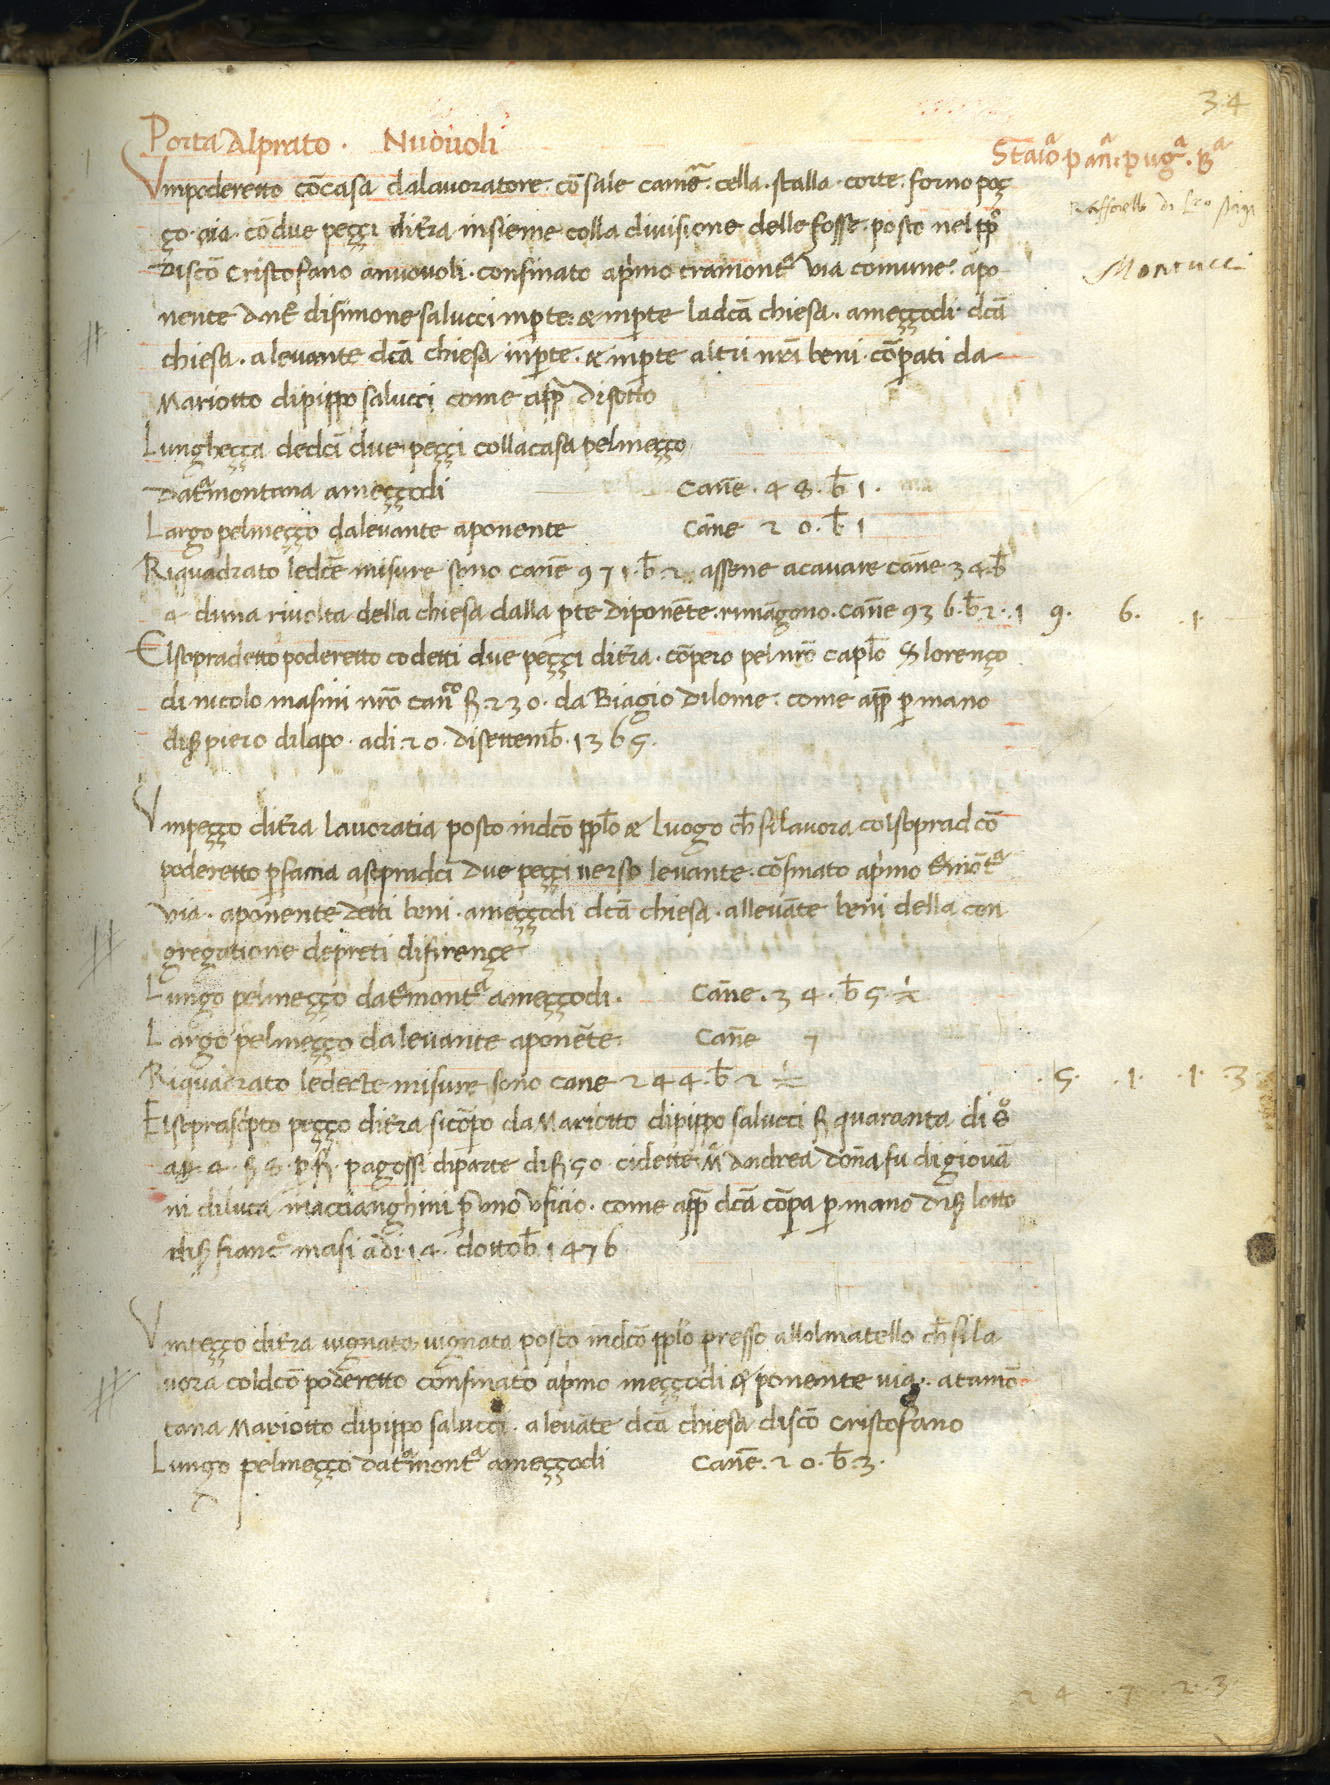 34
Porta Alprato · Nuovoli
Staioa · pana · puga · Ba
Vmpoderetto cōcasa dalavoratore · cō sale camera · cella · stalla · corte · forno poç
ço · aia · cō due peççi ditr̄a insieme colla divisione delle fosse · posto nel pplo
discō Cristofano anuovoli · confinato aprimo tramontā via comune · apo
nente dr̄e disimone salucci inp̄te · & inp̄te ladcā chiesa · ameççodi dcā
chiesa · alevante dcā chiesa inp̄te · & inp̄te altri nrī beni · cōpati da
Mariotto dipippo salucci come app̄ disotto
Lungheçça dedcī due peççi collacasa pelmeçço
datr̄amontana ameççodi Canē · 48 · b̄ 1 ·
Largo pelmeçço dalevante aponente Canē 20 · b̄ 1
Riquadrato ledcē misure sono canē 971 · b̄ 2 assene acavare canē 34 · b̄
4 duna rivolta della chiesa dalla p̄te diponēte · rimāgono · canē 936 · b̄ 2 · 1 9 · 6 · 1 ·
Elsopradetto poderetto codetti due peççi ditr̄a · cōpero pelnrō caplō S lorenço
di nicolo masini nrō canco f 230 · da Biagio dilome · come app̄ p̄ mano
dis piero dilapo · adi 20 · disettemb̄ · 1365 ·
Vnpeçço ditr̄a lauoratia posto indcō pplō & luogo ch̄ silauora colsopradcō
poderetto p̄ faccia asopradcī due peççi verso levante · cōfinato aprimo tr̄amōta
via · aponente detti beni · ameççodi dcā chiesa · allevāte beni della con
gregatione depreti difirençe
Lungo pelmeçço datr̄amonta ameççodi · Canē · 34 · b̄ 5 ½
Largo pelmeçço dalevante aponēte · Canē 7
Riquadrato ledecte misure sono cane 244 · b̄ 2 ½ · 5 · · 1 · · 1 · · 3 ·
Elsoprascripto peçço ditr̄a sicōpo da Mariotto dipippo salucci f quaranta di so
pagossi dip̄arte dif 50 · cidette Ma Andrea donā fu digiovā
ni diluca maccianḡhini p̄ uno uficio · come app̄ dcā cōpa p̄ mano dis lotto
dis franco masi adi 14 · dottob̄ 1476
Vnpeçço ditr̄a vignato vignata posto indcō pplō presso allolmatello ch̄ sila
uora coldcō poderetto confinato aprimo meççodi & ponente via · atramō
tana Mariotto dipippo salucci · alevāte dcā chiesa discō Cristofano
Lungo pelmeçço datr̄amonta ameççodi Canē · 20 · b̄ · 3 ·
24 · 7 · 2 · 3